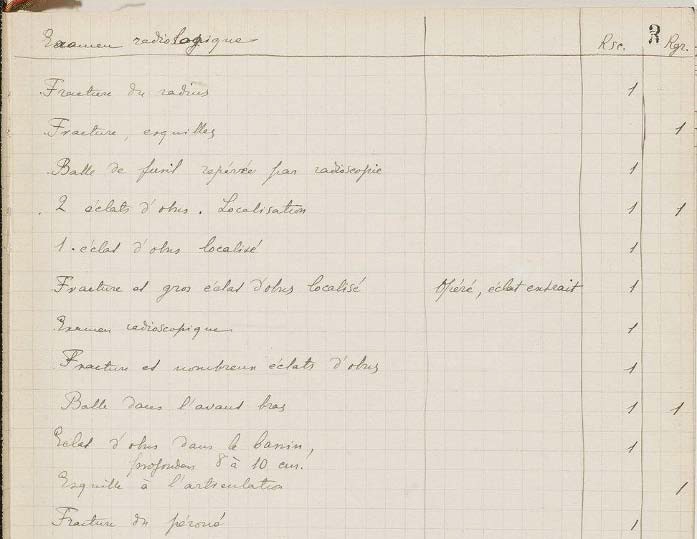 3
Examen radiologique Rsc. Rgr.
Fracture du radius 1
Fracture, esquilles 1
Balle de fusil repérée par radioscopie 1
2 éclats d'obus. Localisation 1 1
1 éclat d'obus localisé 1
Fracture et gros éclat d'obus localisé Opéré, éclat extrait 1
Examen radioscopique 1
Fracture et nombreux éclats d'obus 1
Balle dans l'avant bras 1 1
Eclat d'obus dans le bassin, 1
profondeur 8 à 10 cm.
Esquille à l'articulation 1
Fracture du péroné 1